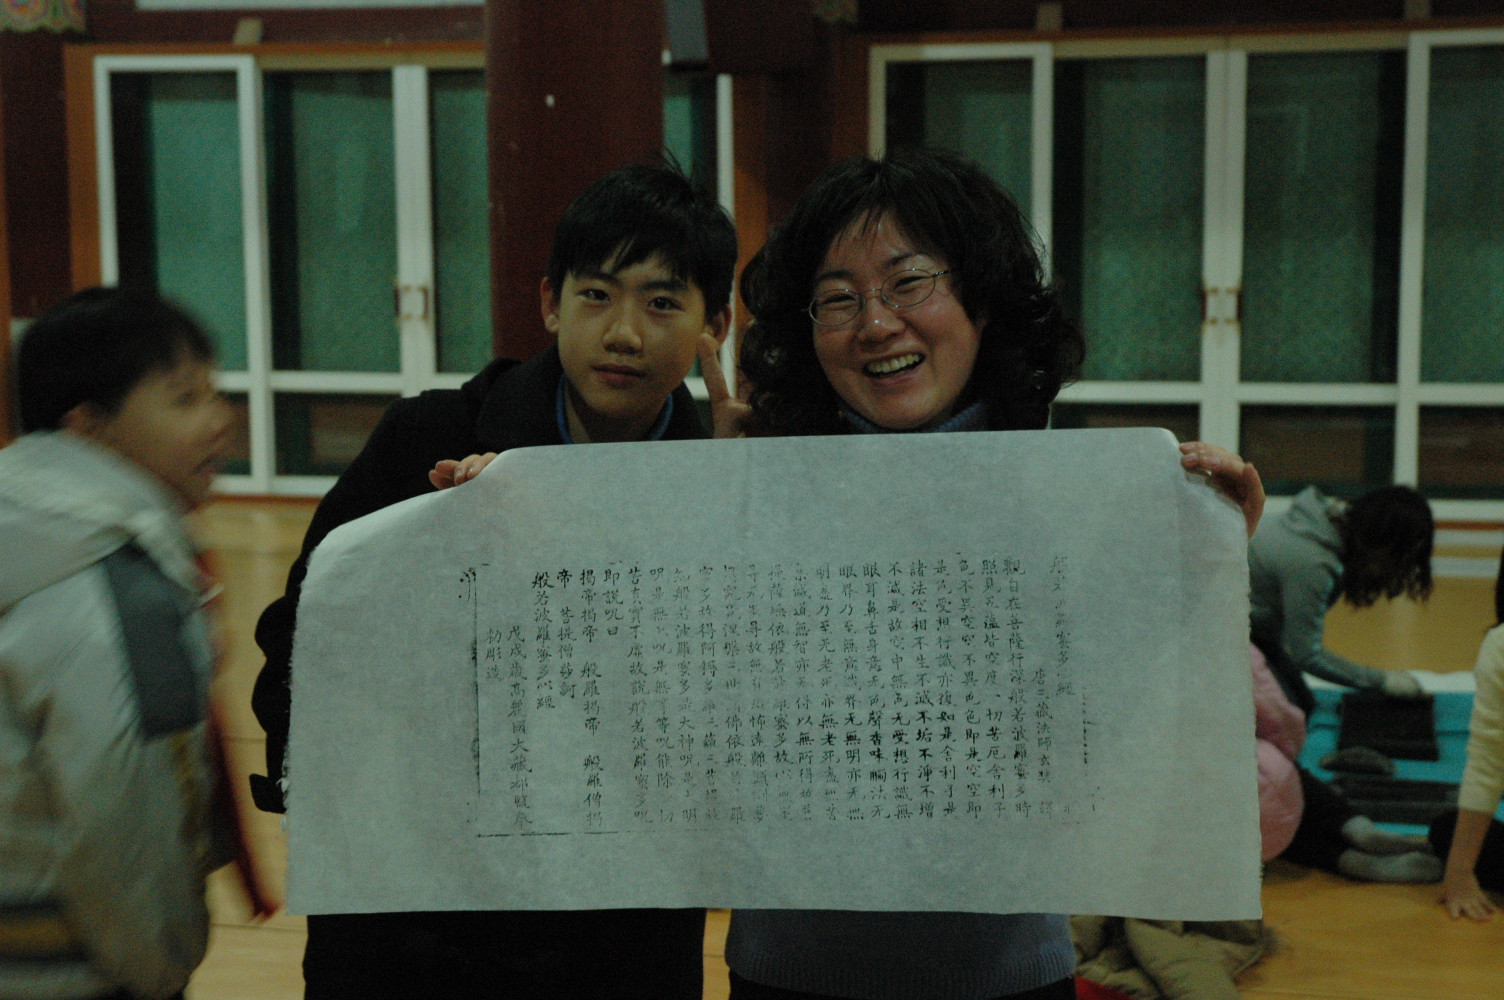 般若波羅蜜多心經
唐三藏法師玄奘 譯
觀自在菩薩行深般若波羅蜜多時
照見五蘊皆空度一切苦厄舍利子
色不異空空不異色色即是空空即
是色受想行識亦復如是舍利子是
諸法空相不生不滅不垢不淨不增
不減是故空中無色无受想行識無
眼耳鼻舌身意无色聲香味觸法无
眼界乃至無意識界无無明亦无無
明盡乃至无老死亦無老死盡無苦
集滅道無智亦无得以無所得故菩
提薩埵依般若波羅蜜多故心無罣
㝵無罣㝵故無有恐怖遠離顛倒夢
想究竟涅槃三世諸佛依般若波羅
蜜多故得阿耨多羅三藐三菩提故
知般若波羅蜜多是大神呪是大明
呪是無上呪是無等等呪能除一切
苦真實不虛故說般若波羅蜜多呪
即說呪曰
揭帝揭帝 般羅揭帝 般羅僧揭
帝 菩提僧莎訶
般若波羅蜜多心經
戊戌歲高麗國大藏都監奉
勅彫造